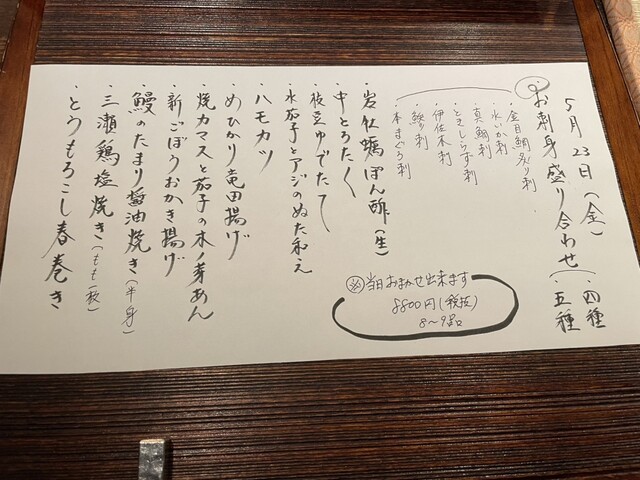 5月23日(金)
・お刺身盛り合わせ(・四種 ・五種
・金目鯛炙り刺
・水いか刺
・真鯛刺
・ときしらず刺
・伊佐木刺
・鰺刺
・本まぐろ刺
・岩牡蠣ぽん酢(生)
・中とろたく
・枝豆ゆでたて
・水茄子とアジのぬた和え
・ハモカツ
・めひかり竜田揚げ
・焼カマスと茄子の木ノ芽あん
・新ごぼうおかき揚げ
・鰻のたまり醤油焼き(半身)
・三瀬鶏塩焼き(もも一枚)
・とうもろこし春巻き
※当日おまかせ出来ます
8800円(税抜)
8～9品